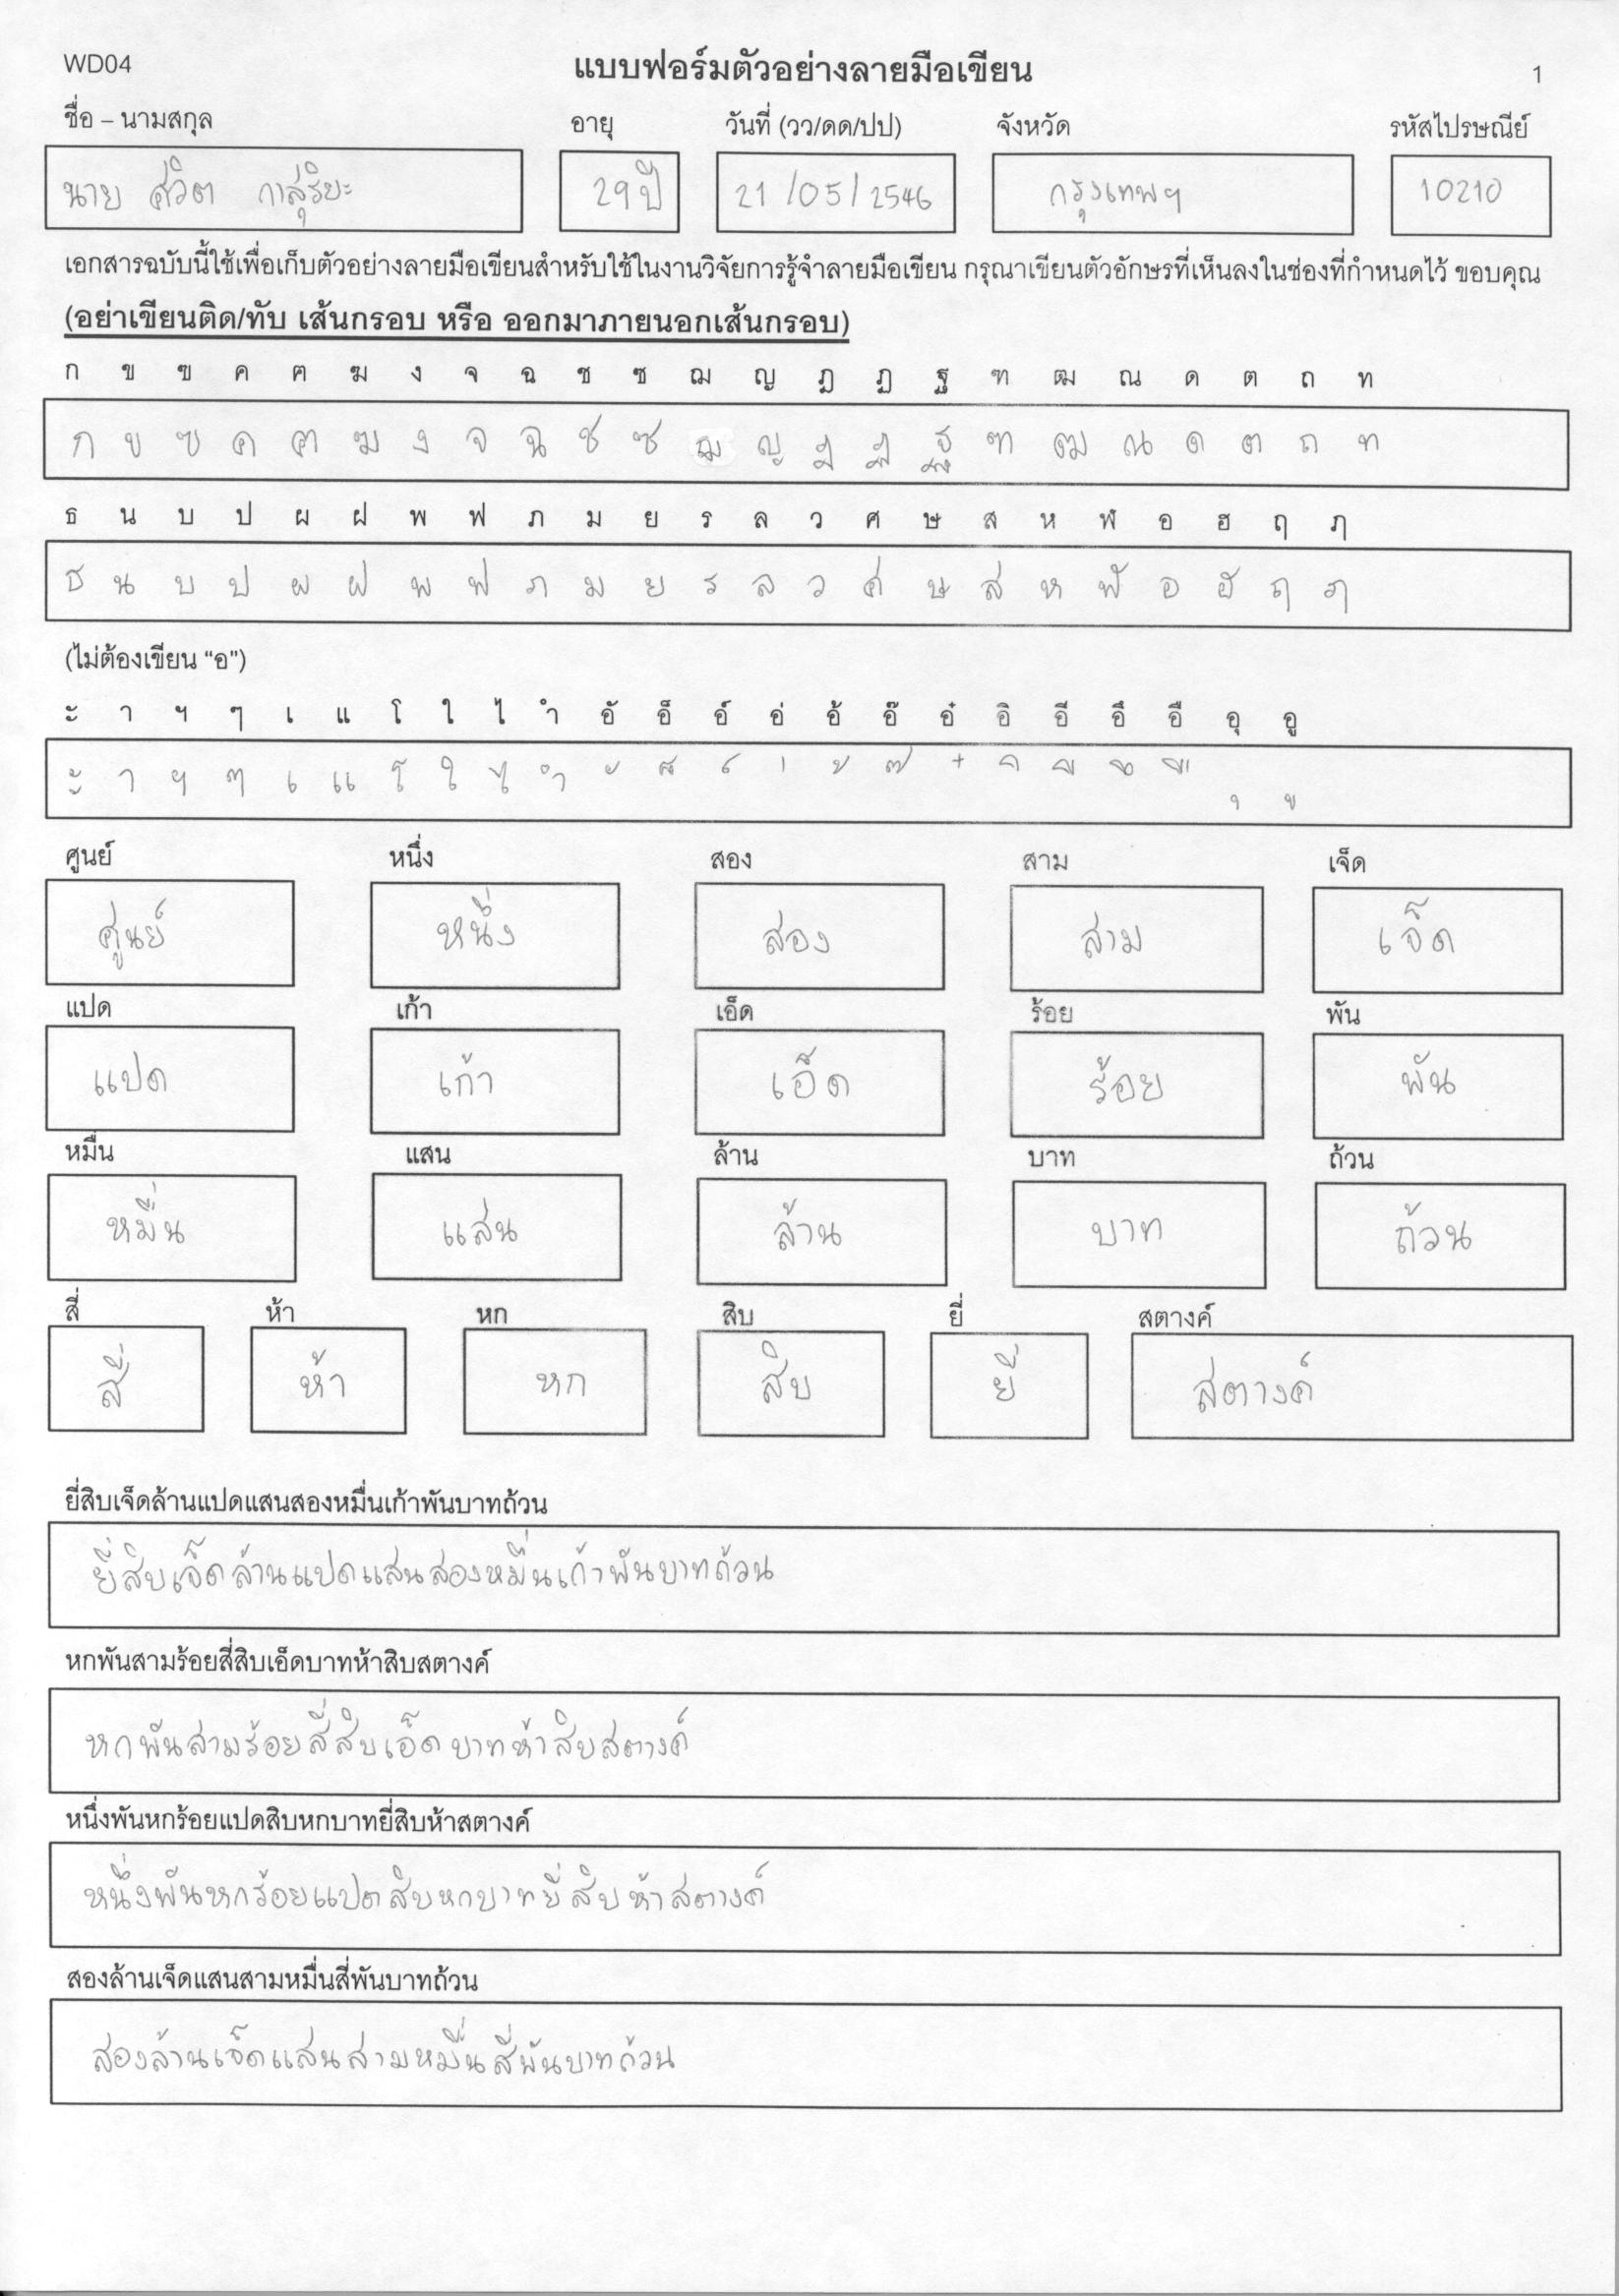 WD04 แบบฟอร์มตัวอย่างลายมือเขียน 1
ชื่อ – นามสกุล อายุ วันที่ (วว/ดด/ปป) จังหวัด รหัสไปรษณีย์
นาย ศวิต กาสุริยะ 29ปี 21/05/2546 กรุงเทพฯ 10210
เอกสารฉบับนี้ใช้เพื่อเก็บตัวอย่างลายมือเขียนสำหรับใช้ในงานวิจัยการรู้จำลายมือเขียน กรุณาเขียนตัวอักษรที่เห็นลงในช่องที่กำหนดไว้ ขอบคุณ
(อย่าเขียนติด/ทับ เส้นกรอบ หรือ ออกมาภายนอกเส้นกรอบ)
ก ข ฃ ค ฅ ฆ ง จ ฉ ช ซ ฌ ญ ฎ ฏ ฐ ฑ ฒ ณ ด ต ถ ท
ก ข ฃ ค ฅ ฆ ง จ ฉ ช ซ ฌ ญ ฎ ฏ ฐ ฑ ฒ ณ ด ต ถ ท
ธ น บ ป ผ ฝ พ ฟ ภ ม ย ร ล ว ศ ษ ส ห ฬ อ ฮ ฤ ภ
ธ น บ ป ผ ฝ พ ฟ ภ ม ย ร ล ว ศ ษ ส ห ฬ อ ฮ ฤ ฦ
(ไม่ต้องเขียน “อ”)
ะ า ฯ ๆ เ แ โ ใ ไ ำ อั อ็ อ์ อ่ อ้ อ๊ อ๋ อิ อี อึ อื อุ อู
ะ า ฯ ๆ เ แ โ ใ ไ ำ ั ็ ์ ่ ้ ๊ ๋ ิ ี ึ ื ุ ู
ศูนย์ หนึ่ง สอง สาม เจ็ด
ศูนย์ หนึ่ง สอง สาม เจ็ด
แปด เก้า เอ็ด ร้อย พัน
แปด เก้า เอ็ด ร้อย พัน
หมื่น แสน ล้าน บาท ถ้วน
หมื่น แสน ล้าน บาท ถ้วน
สี่ ห้า หก สิบ ยี่ สตางค์
สี่ ห้า หก สิบ ยี่ สตางค์
ยี่สิบเจ็ดล้านแปดแสนสองหมื่นเก้าพันบาทถ้วน
ยี่สิบเจ็ดล้านแปดแสนสองหมื่นเก้าพันบาทถ้วน
หกพันสามร้อยสี่สิบเอ็ดบาทห้าสิบสตางค์
หกพันสามร้อยสี่สิบเอ็ดบาทห้าสิบสตางค์
หนึ่งพันหกร้อยแปดสิบหกบาทยี่สิบห้าสตางค์
หนึ่งพันหกร้อยแปดสิบหกบาทยี่สิบห้าสตางค์
สองล้านเจ็ดแสนสามหมื่นสี่พันบาทถ้วน
สองล้านเจ็ดแสนสามหมื่นสี่พันบาทถ้วน